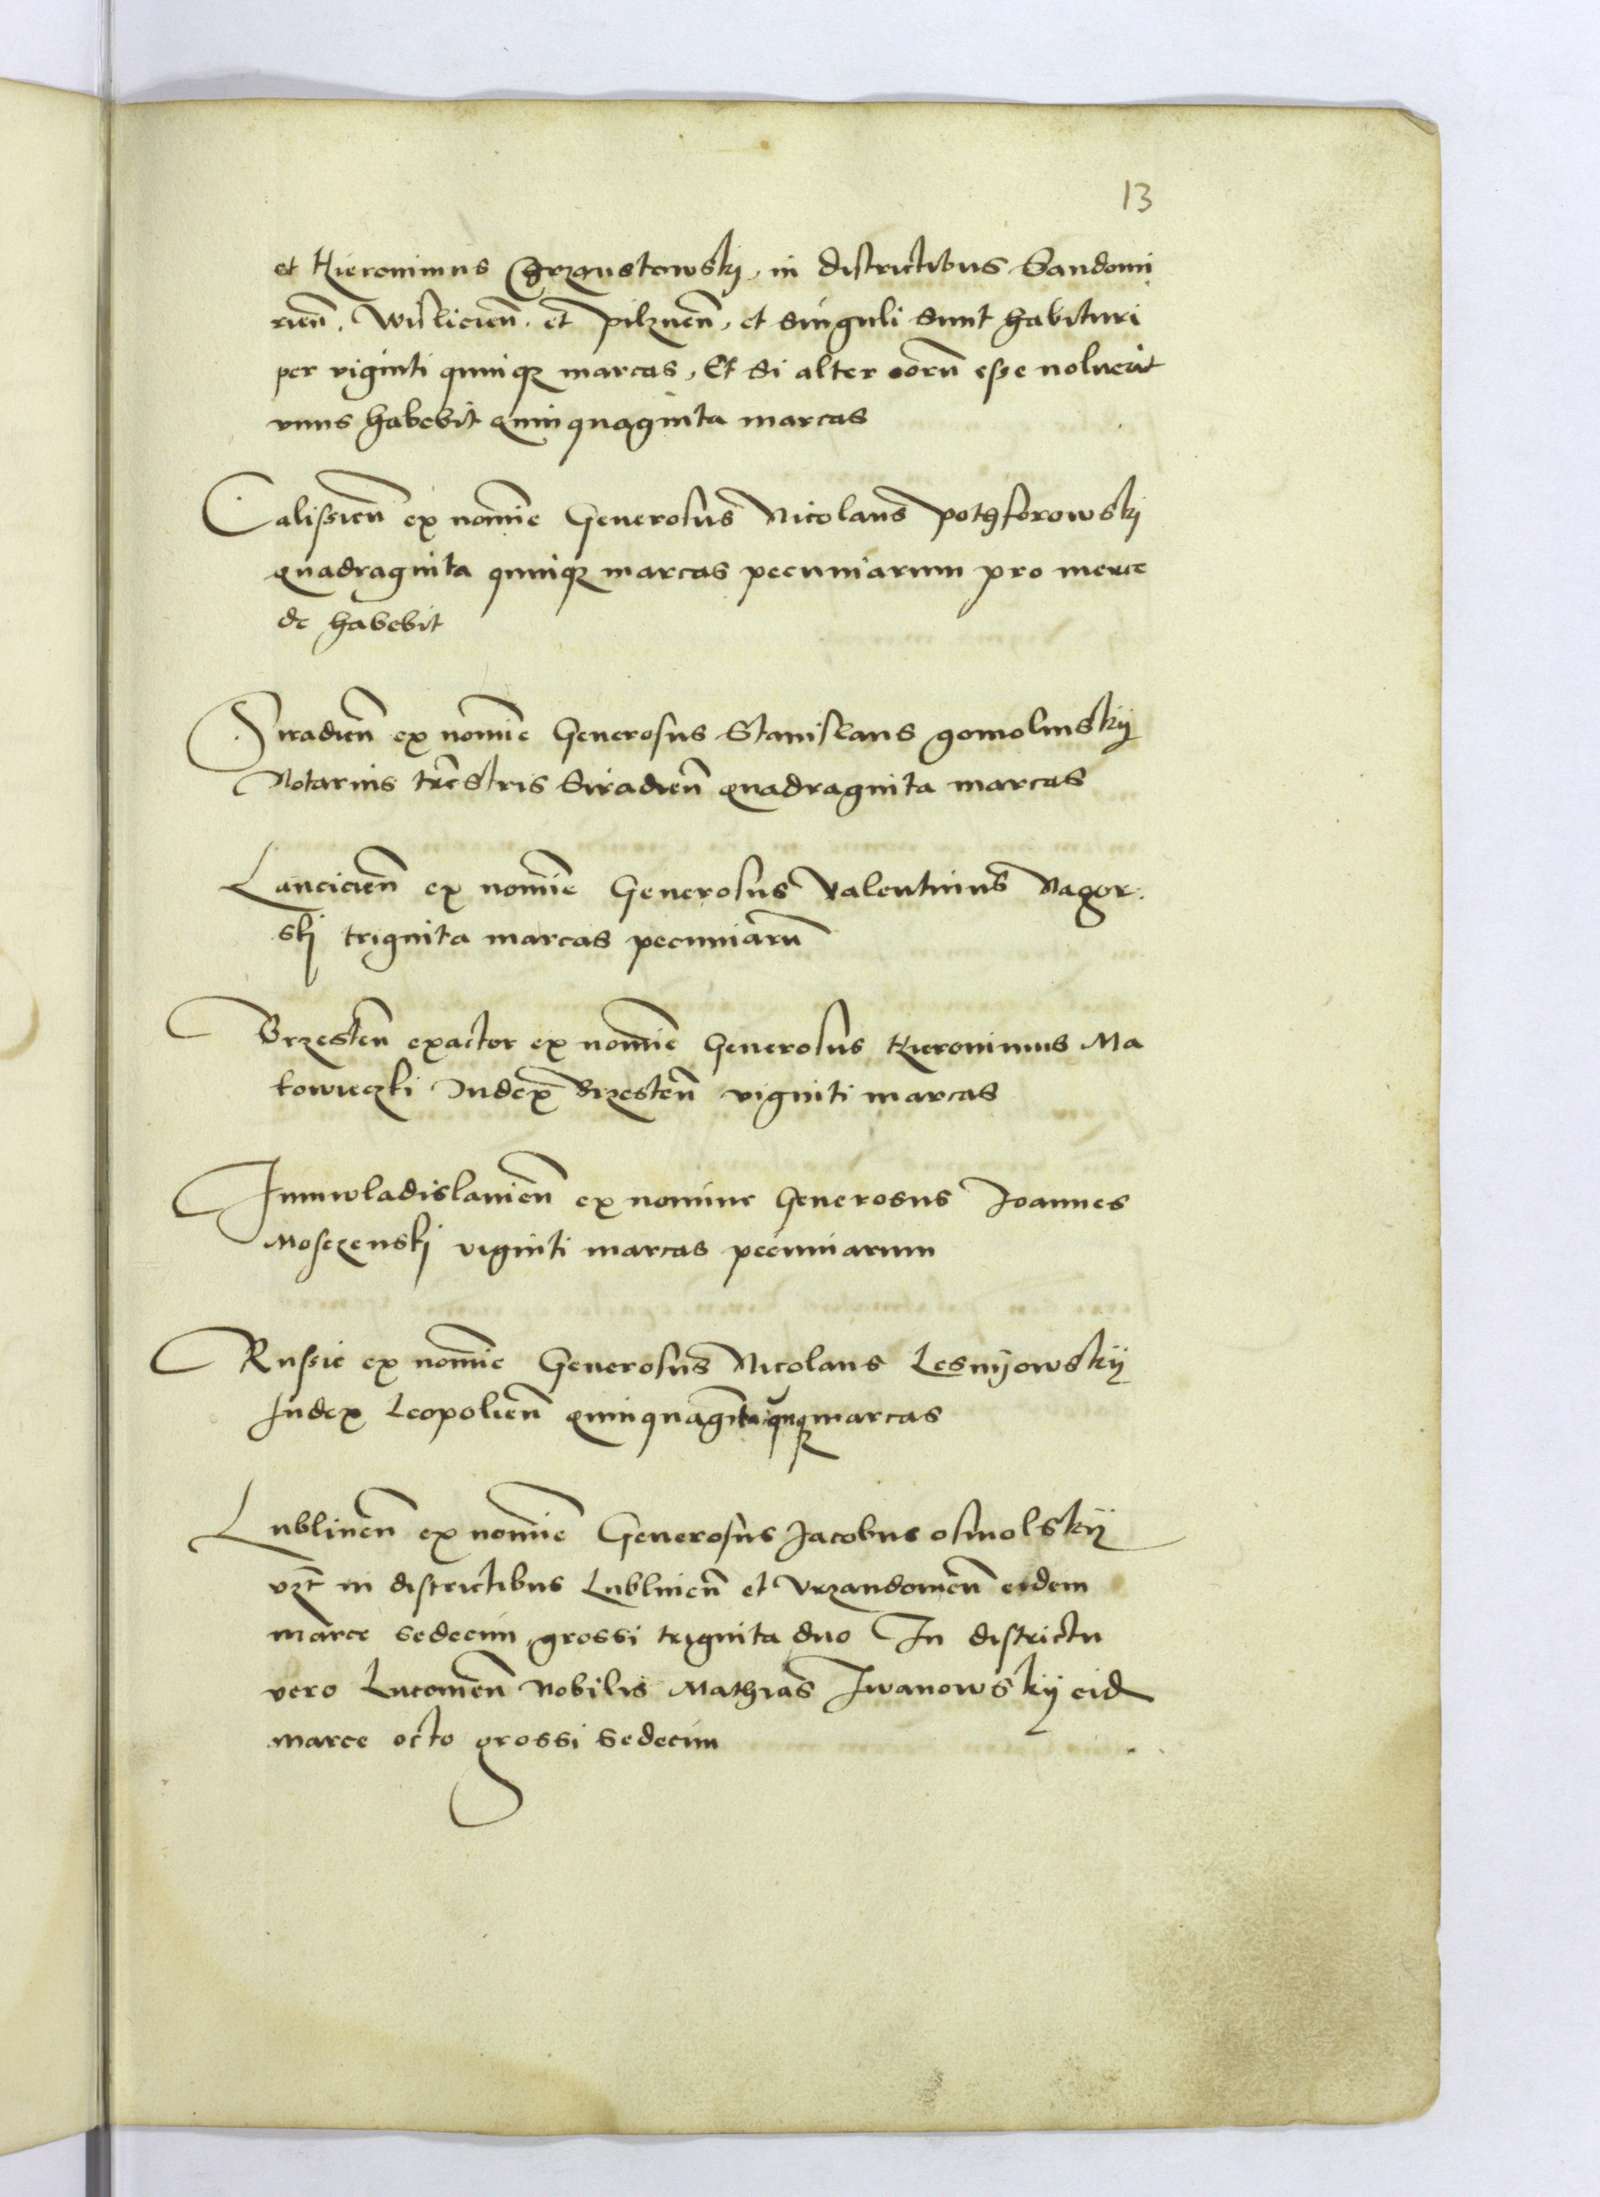 13
et Hieronimus Chrząnstowskj, in districtibus Sandomi
rień. Wislicień. et pilzneń, et singuli sunt habituri
per viginti quinqȝ marcas, Et si alter eorū esse noluerit
vnus habebit quinquaginta marcas
Calissień ex nomīe Generosus Nicolaus pothforowskj
quadraginta quinqȝ marcas pecuniarum pro merce
de habebit
Siradień ex nomīe Generosus Stanislaus gomolinskÿ
Notarius trēstris Siradień quadraginta marcas
Lancicień ex nomīe Generosus Valentinus Nagor
skj triginta marcas pecuniarū
Brzesteń exactor ex nomīe Generosus Hieronimus Ma
kowieczki Iudex brzesteń viginti marcas
Iuniwladislauień ex nomine Generosus Joannes
Mosczenskj viginti marcas pecuniarum
Russie ex nomīe Generosus Nicolaus Lesnÿowskÿ
Iudex Leopolień quinquagīta qnqȝ marcas
Lublineń ex nomīe Generosus Jacobus osmolskÿ
vȝt in districtibus Lublineń et Vrzandoweń eidem
marce sedecim, grossi triginta duo In districtu
vero Lucoweń Nobilis Mathias Iwanowskÿ eid
marce octo grossi sedecim